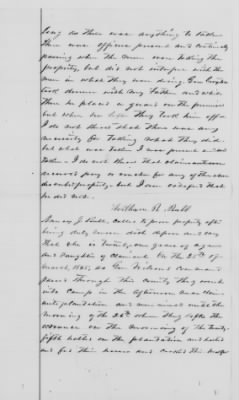 long as there was anything to take
There was officers present and continuly
passing when the men were taking the
property, but did not interfere with the
men in what they was doing Gen
took dinner with my Father and while
there he placed a guard on the premises
but when he left they took him off
I do not think that there was any
necessity for taking what they did
but what was taken I was present and
taken - I do not think that claimant ever
received pay or voucher for any of the
property - but I am satisfied that
he did not.
William R. Rutt
J. called to prove property after
being duly sworn doth depose and say
that she is twenty one years of age
and daughter of claimant On the 25th of
march 1865, as Gen Wilsons command
passed through this county they went
into Camp in the afternoon near
plantation and remained until the
morning of the 26th when they left the
on the morning of the twenty
fifth halted on the plantation and
and fed this and cooked this